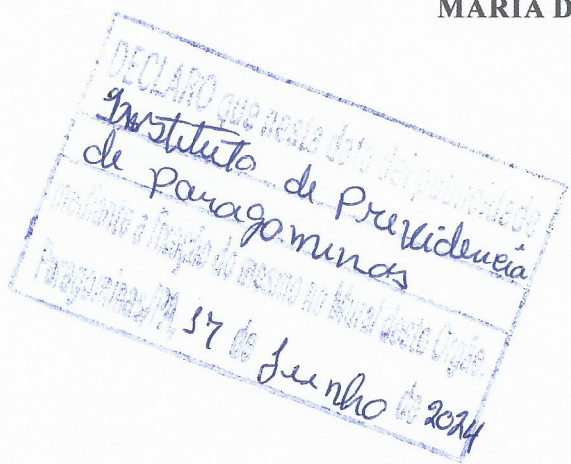 MARIA D
DECLARO que nesta data foi publicado
Instituto de Previdencia
de Paragominas
mediante a fixação do mesmo no Mural deste Orgão.
Paragominas/PA, 17 de Junho de 2024